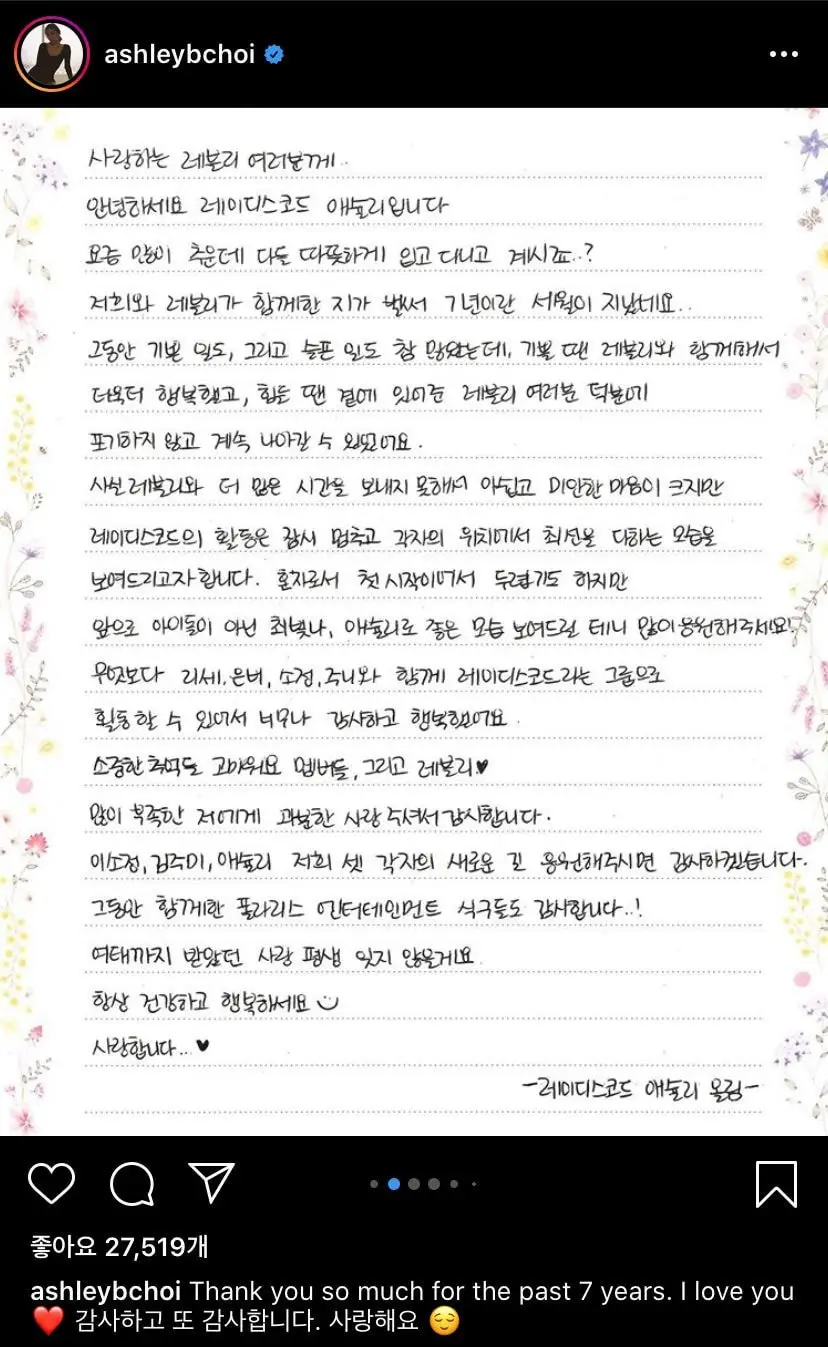 ashleybchoi
사랑하는 레블리 여러분께..
안녕하세요 레이디스코드 애슐리입니다
요즘 많이 추운데 다들 따뜻하게 입고 다니고 계시죠..?
저희와 레블리가 함께한 지가 벌써 7년이란 세월이 지났네요..
그동안 기쁜 일도, 그리고 슬픈 일도 참 많았는데, 기쁠 땐 레블리와 함께해서
더욱더 행복했고, 힘든 땐 곁에 있어준 레블리 여러분 덕분에
포기하지 않고 계속 나아갈 수 있었어요.
사실 레블리와 더 많은 시간을 보내지 못해서 아쉽고 미안한 마음이 크지만
레이디스코드의 활동은 잠시 멈추고 각자의 위치에서 최선을 다하는 모습을
보여드리고자합니다. 혼자로서 첫 시작이어서 두렵기도 하지만
앞으로 아이돌이 아닌 최빛나, 애슐리로 좋은 모습 보여드릴 테니 많이응원해주세요!
무엇보다 리세,은비,소정,주니와 함께 레이디스코드라는 그룹으로
활동할 수 있어서 너무나 감사하고 행복했어요.
소중한추억들 고마워요 멤버들,그리고 레블리♥
많이 부족한 저에게 과분한 사랑주셔서감사합니다.
이소정,김주미,애슐리 저희 셋 각자의 새로운 길 응원해주시면 감사하겠습니다.
그동안 함께한 폴라리스 엔터테인먼트 식구들도 감사합니다..!
여태까지 받았던 사랑 평생 잊지 않을게요
항상 건강하고 행복하세요
사랑합니다...♥
-레이디스코드 애슐리 올림-
좋아요 27,519개
ashleybchoi Thank you so much for the past 7 years. I love you
❤️ 감사하고 또 감사합니다. 사랑해요 😌